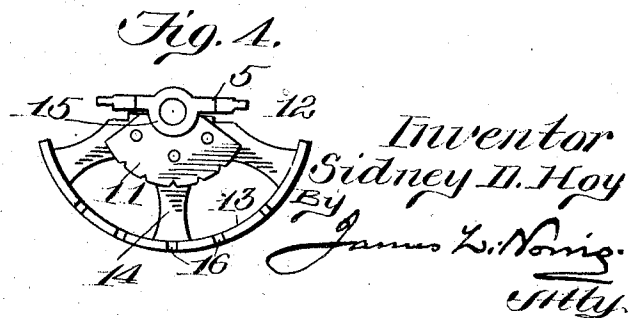 Fig. 4.
5
15
12
11
13
14
16
Inventor
Sidney D. Hoy
By
James L. Norris.
Atty.